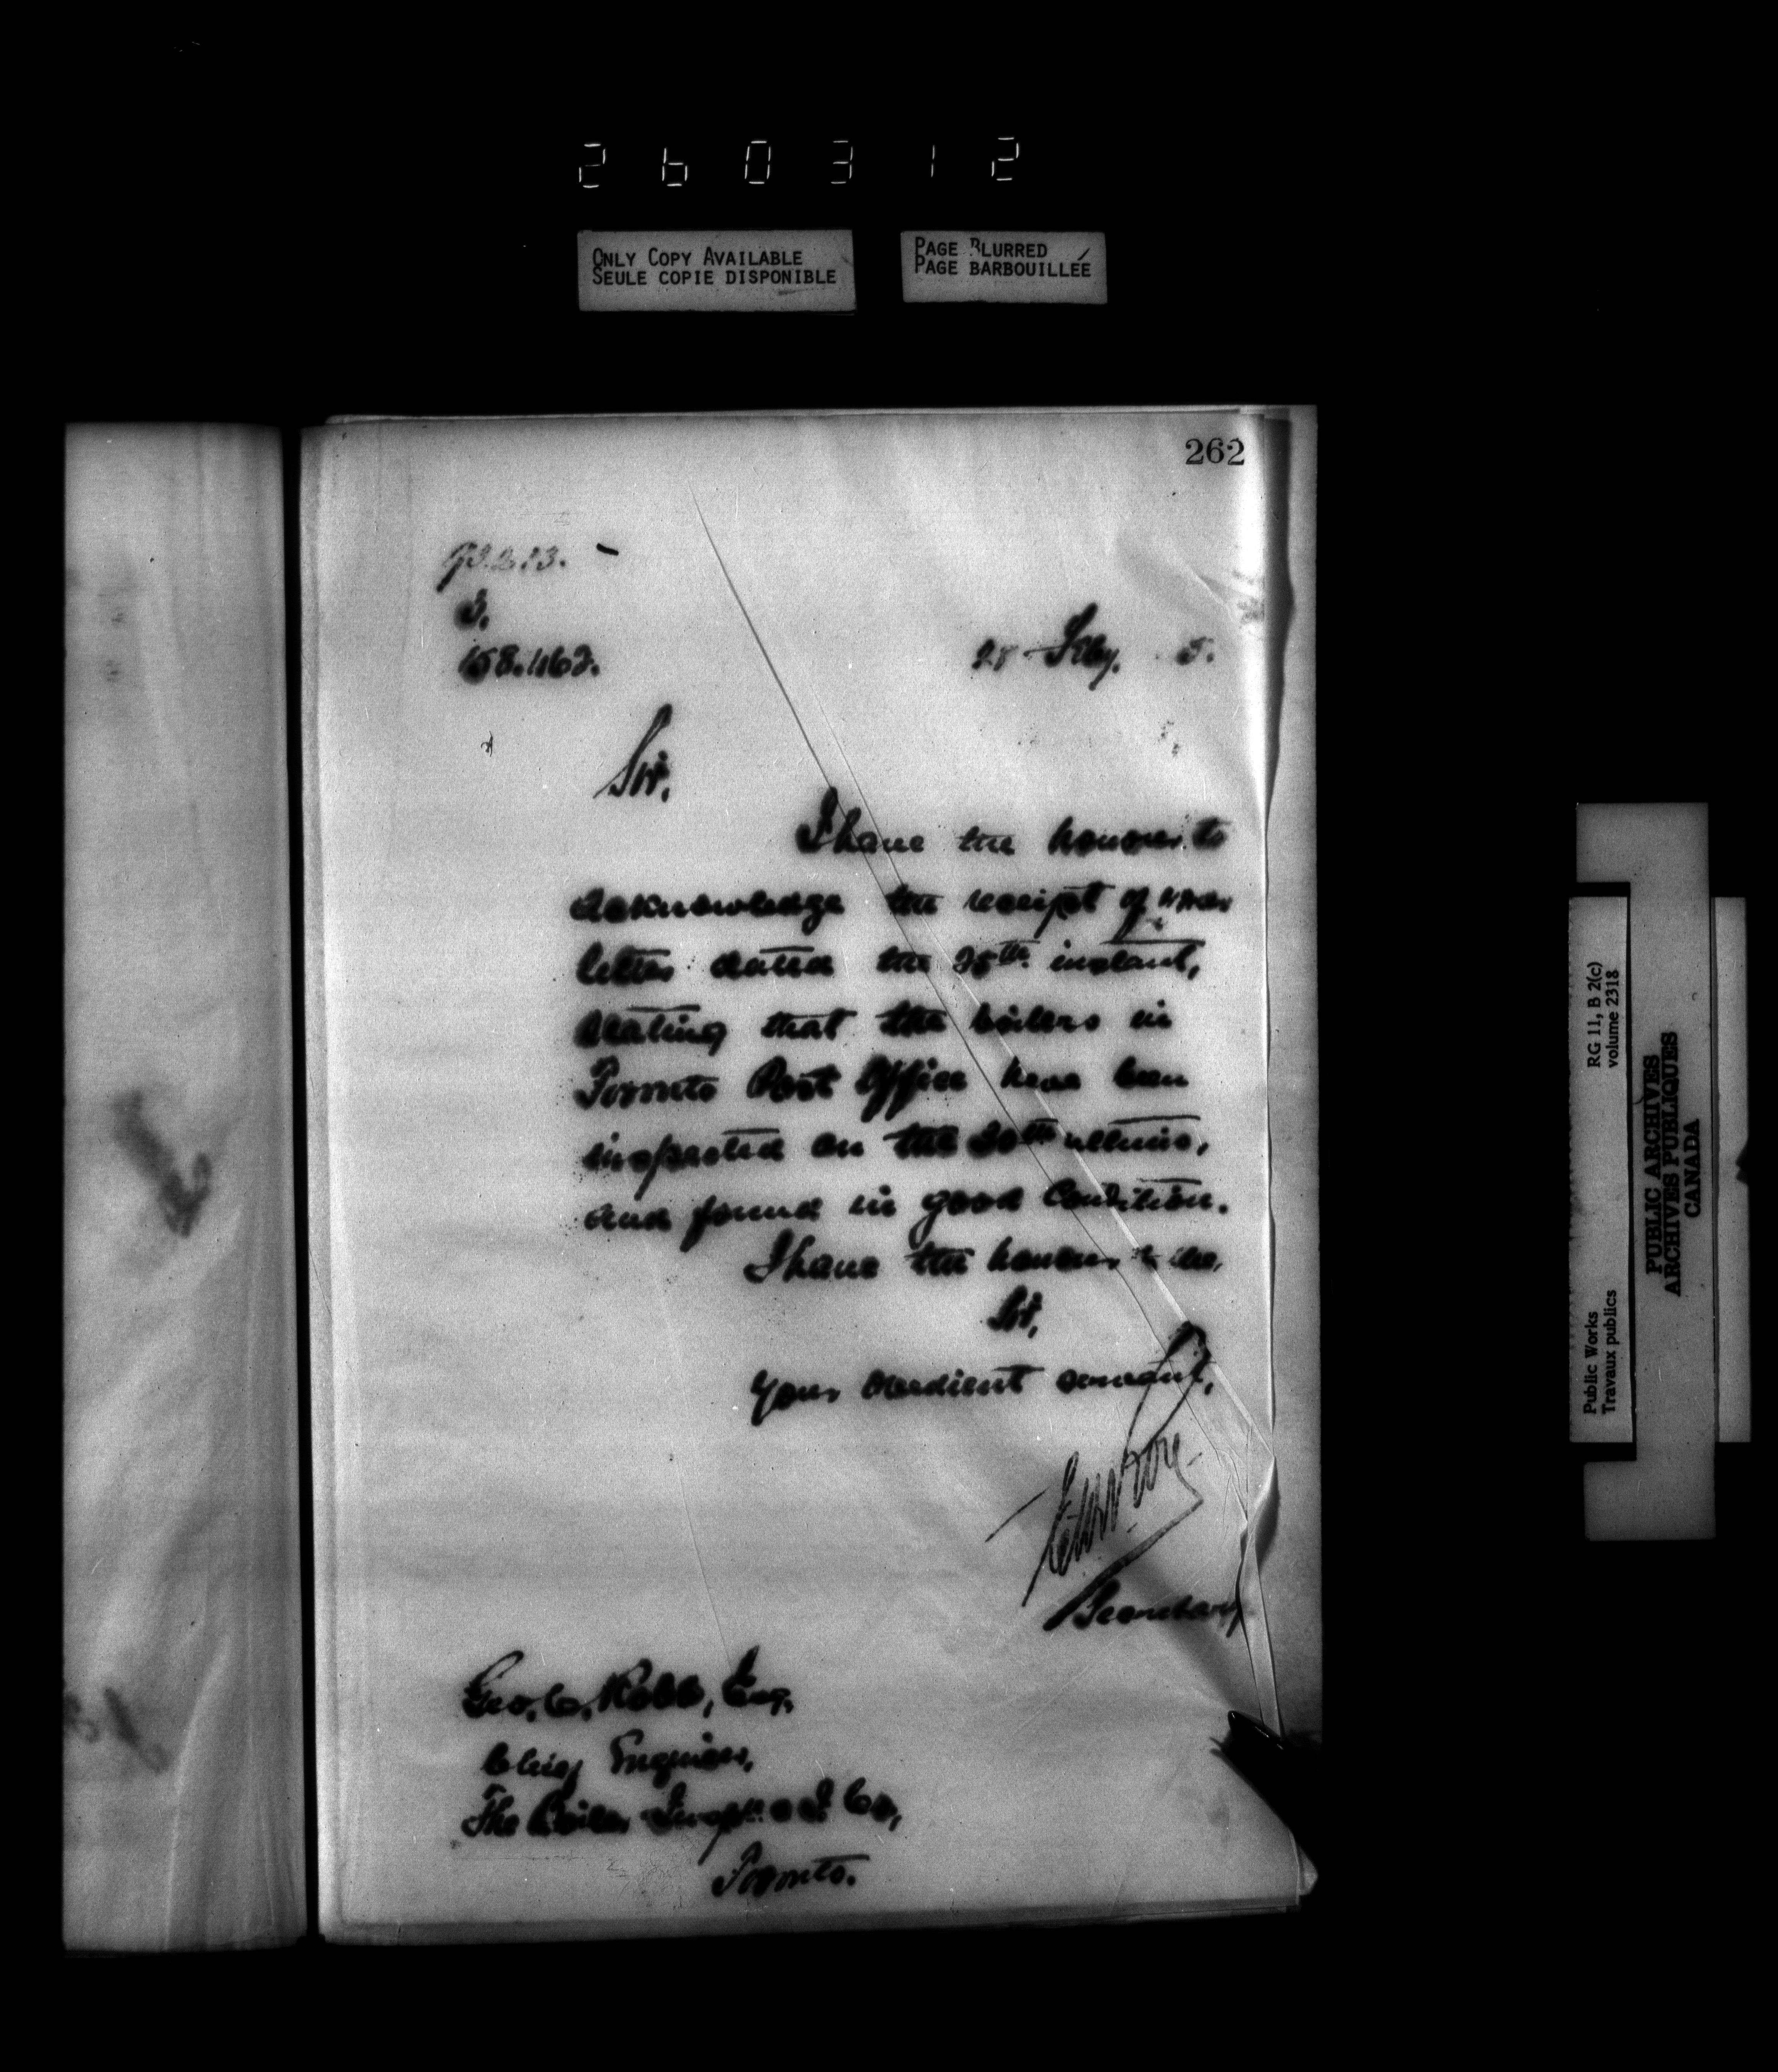 260312
ONLY COPY AVAILABLE
SEULE COPIE DISPONIBLE
PAGE BLURRED
PAGE BARBOUILLÉE
262
28 Feby. 5.
Sir,
I have the honour to
acknowledge the receipt of your
letter dated the 25th. instant,
stating that the boilers in
Toronto Post Office have been
inspected on the 20th ultimo,
and found in good condition.
I have the honour to be,
Sir,
Your obedient servant,
Secretary
Geo. C. Robb, Esq.
Chief Engineer,
The Boiler Insp'n & I Co,
Toronto.
RG 11, B 2(c)
volume 2318
Public Works
Travaux publics
PUBLIC ARCHIVES
ARCHIVES PUBLIQUES
CANADA